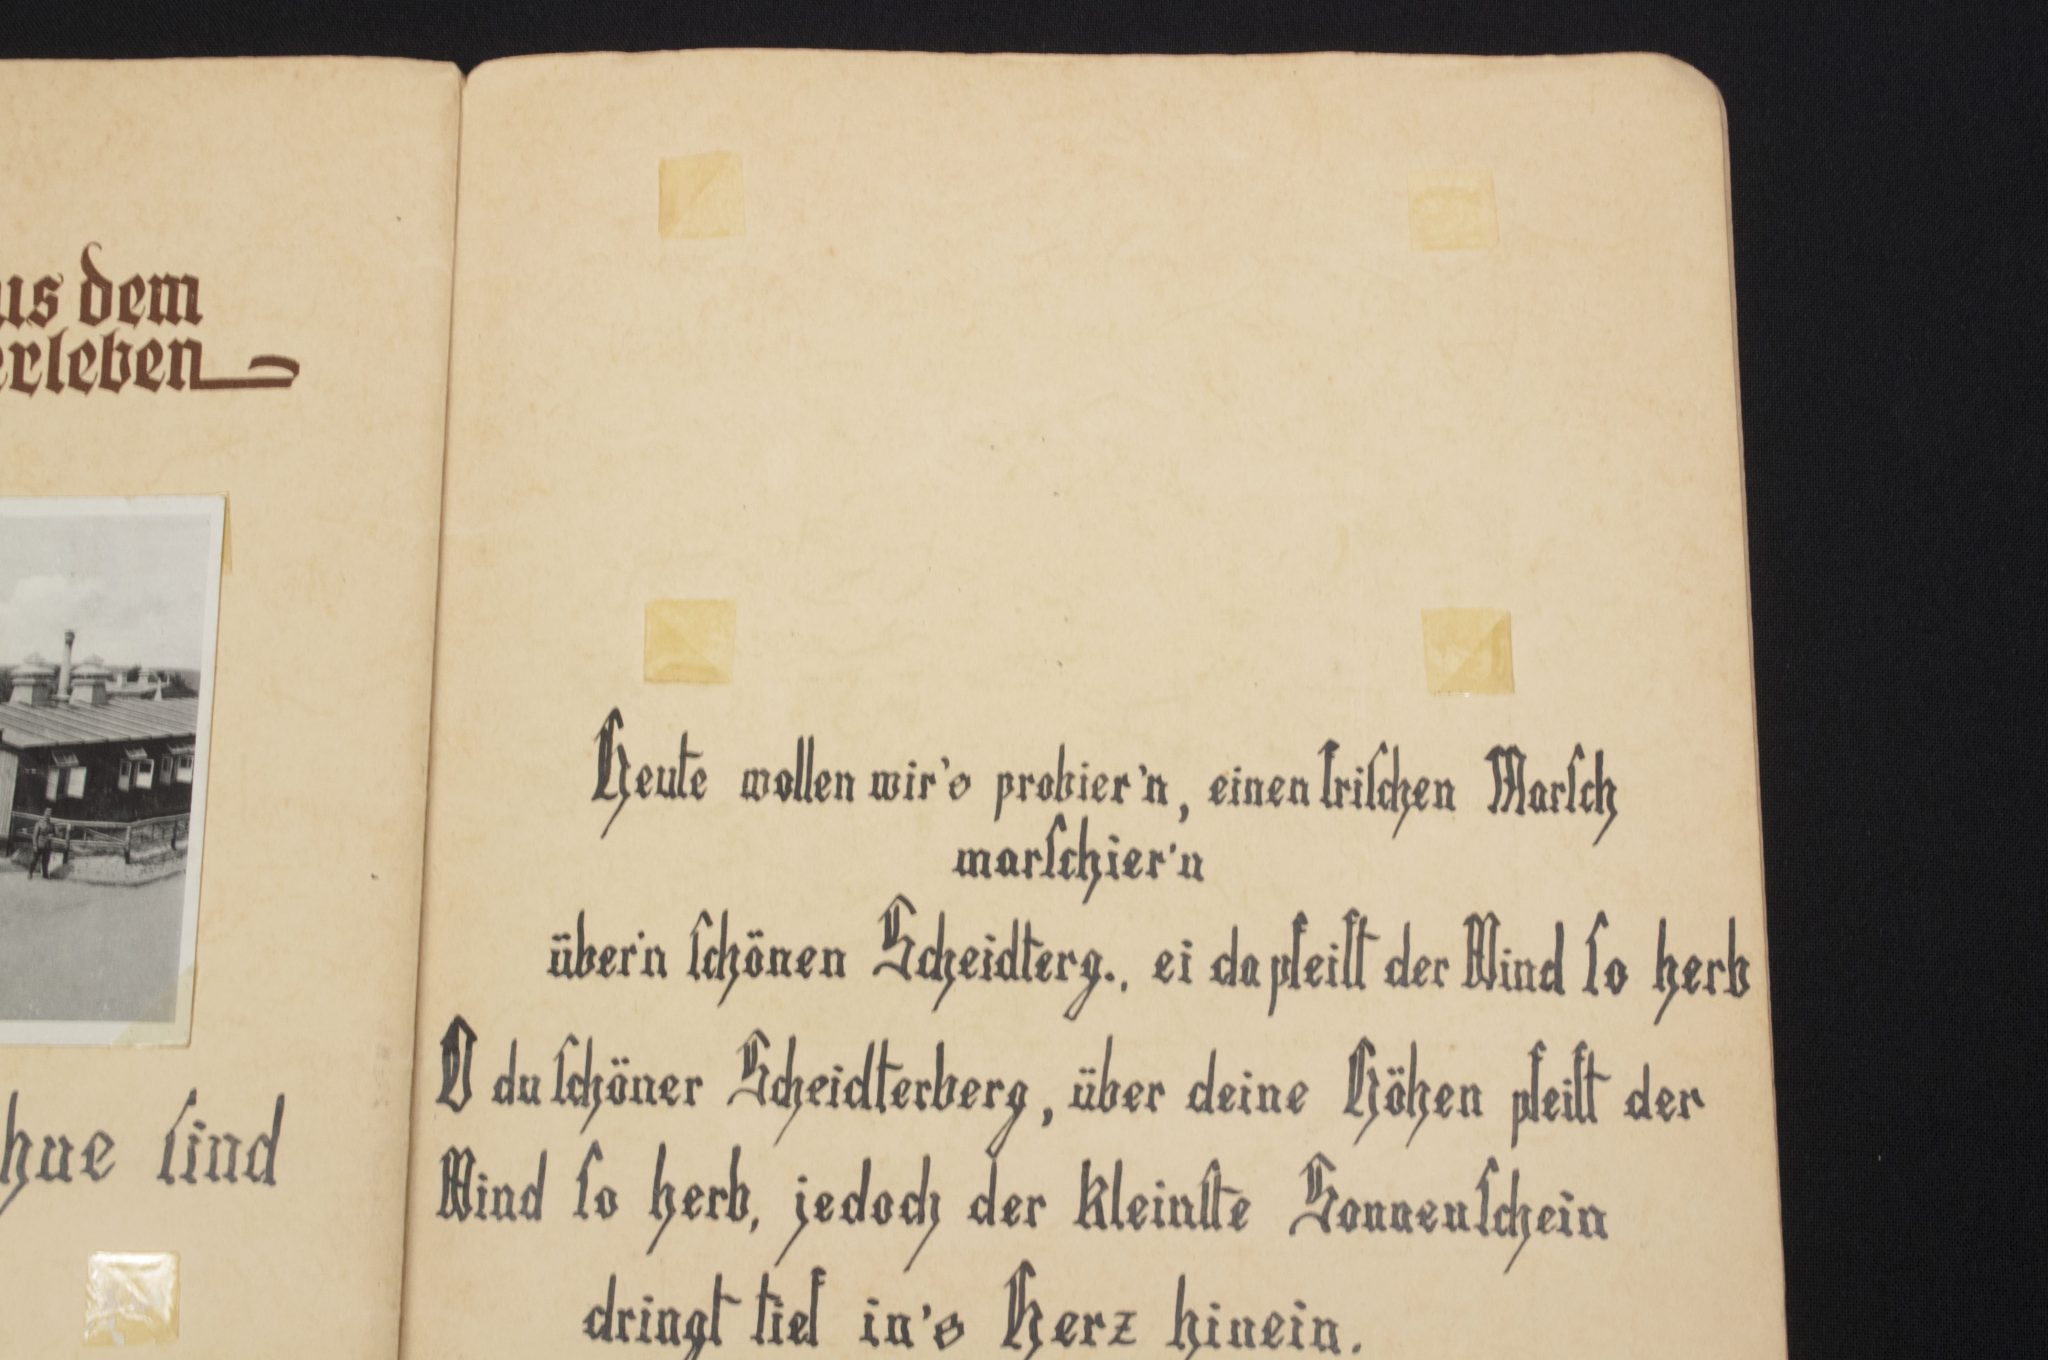 us dem
erleben
hne sind
Heute wollen wir's probier'n, einen frischen Marsch
marschier'n
über'n schönen Scheidterg., ei da pfeift der Wind so herb
O du schöner Scheidterberg, über deine Höhen pfeift der
Wind so herb, jedoch der kleinste Sonnenschein
dringt tief in's Herz hinein.